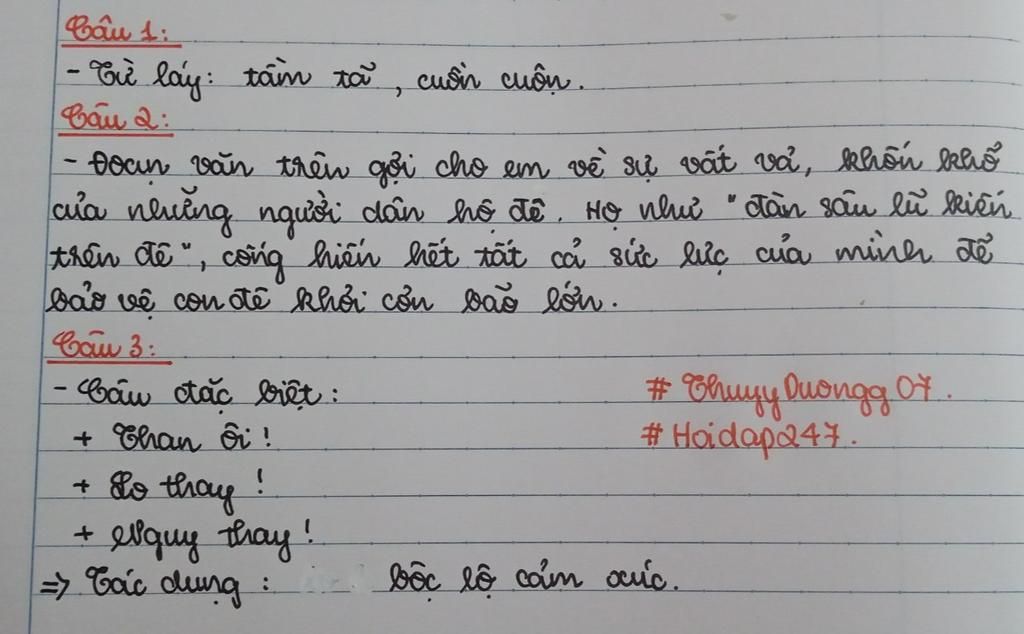 Câu 1:
- Từ láy: tầm tã, cuồn cuộn.
Câu 2:
- Đoạn văn trên gợi cho em về sự vất vả, khốn khổ
của những người dân hộ đê. Họ như "đàn sâu lũ kiến
trên đê", cống hiến hết tất cả sức lực của mình để
bảo vệ con đê khỏi cơn bão lớn.
Câu 3:
- Câu đặc biệt:
# ThuyyDuongg07.
+ Than ôi!
# Hoidap247.
+ Lo thay!
+ Nguy thay!
=> Tác dụng: bộc lộ cảm xúc.